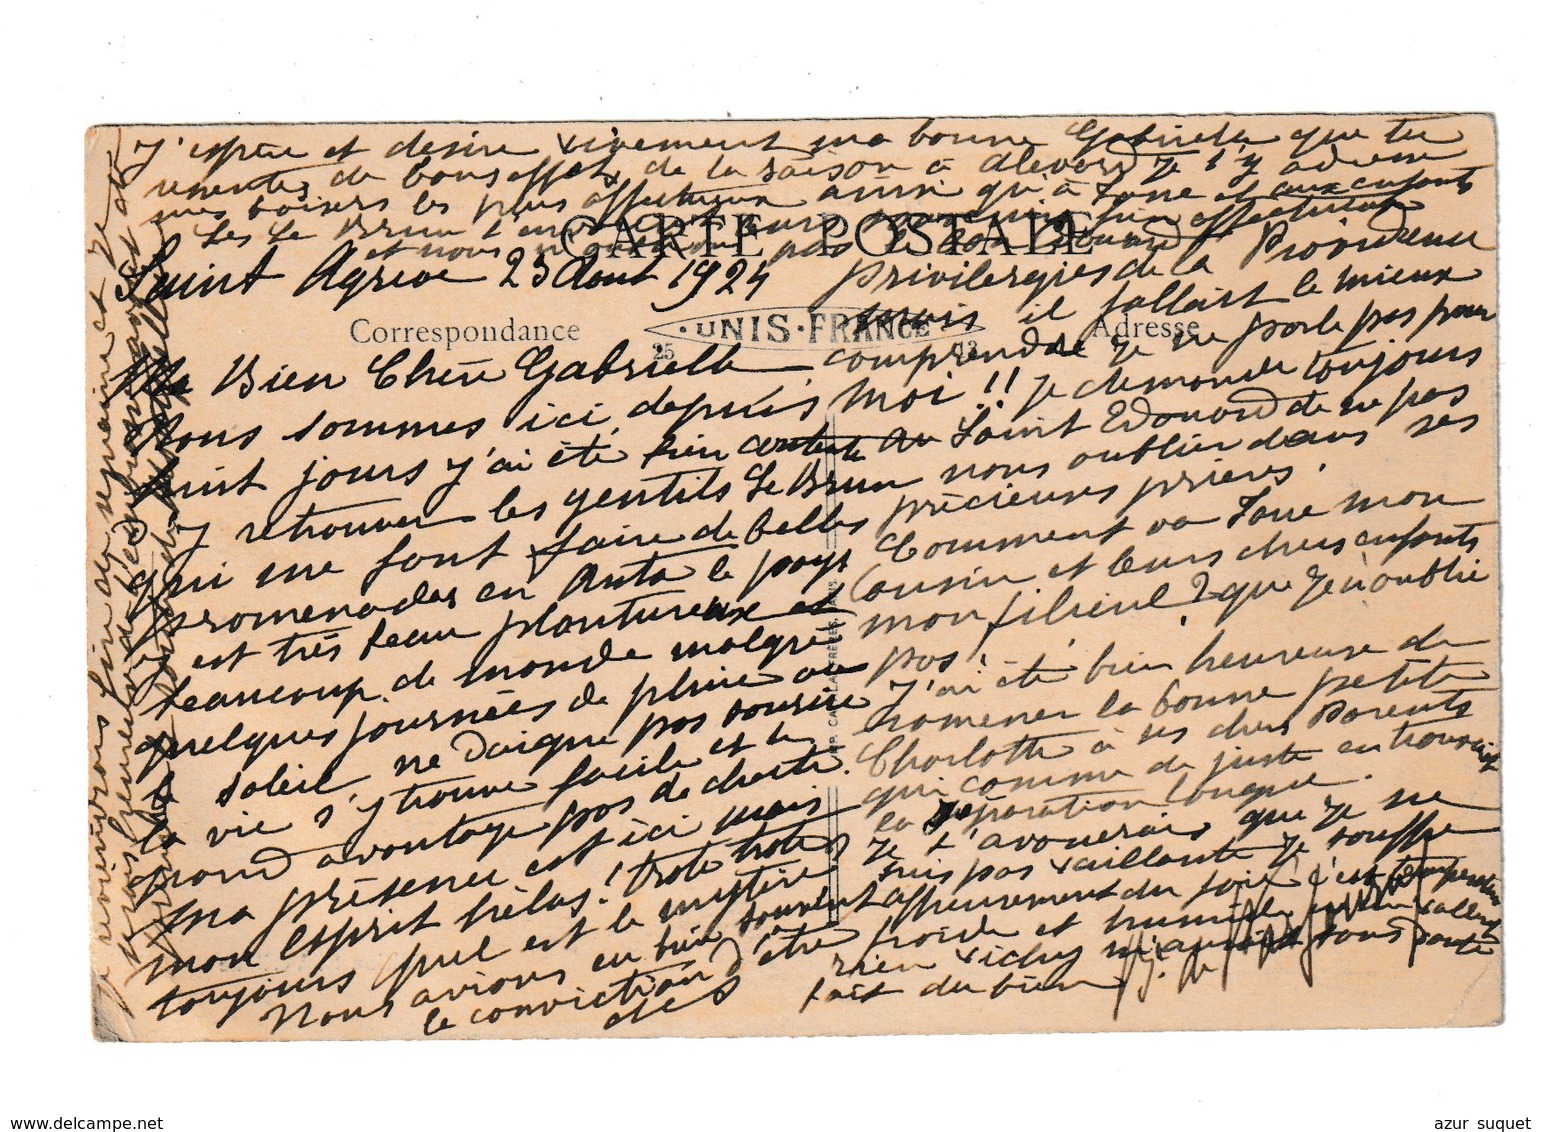 J'espère et désire vivement ma bonne Gabrielle que tu
ressentes de bons effets de la saison à Allevard Je t'y adresse
mes baisers les plus affectueux ainsi qu'à Zone et aux enfants
Les Le Brun
et nous
CARTE POSTALE
Saint Agrève 23 Aout 1924
Correspondance
UNIS-FRANCE
25
13
Adresse
Ma Bien Chère Gabrielle
Nous sommes ici depuis
huit jours j'ai été bien contente
y retrouver les gentils Le Brun
qui me font faire de belles
promenades en Auto le pays
est très beau plantureux et
beaucoup de monde malgré
quelques journées de pluie ou
le soleil ne daigne pas sourire
la vie s'y trouve facile et le
grand avantage pas de chaleur.
ma présence est ici mais
mon esprit hélas! trotte trotte
toujours quel est le mystère?
Nous avions eu bien souvent
la conviction d'être
des
privilègiés de la Providence
mais il fallait le mieux
comprendre Je ne parle pas pour
moi!! Je demande toujours
au Saint Edouard de ne pas
nous oublier dans ses
précieuses prières.
Comment va Zone mon
Cousin et leurs chers enfants
mon filleul? que Je n'oublie
pas!
J'ai été bien heureuse de
ramener la bonne petite
Charlotte à ses chers Parents
qui comme de juste en trouvait
la séparation longue.
Je t'avouerais que Je ne
suis pas vaillante Je souffre
affreusement du foie c'est
froide et humide
rien Vichy m'aurait sans doute
fait du bien
Je reviendrais fin de semaine et Je
IMP. CATALA FRERES, PARIS
www.delcampe.net
azur suquet